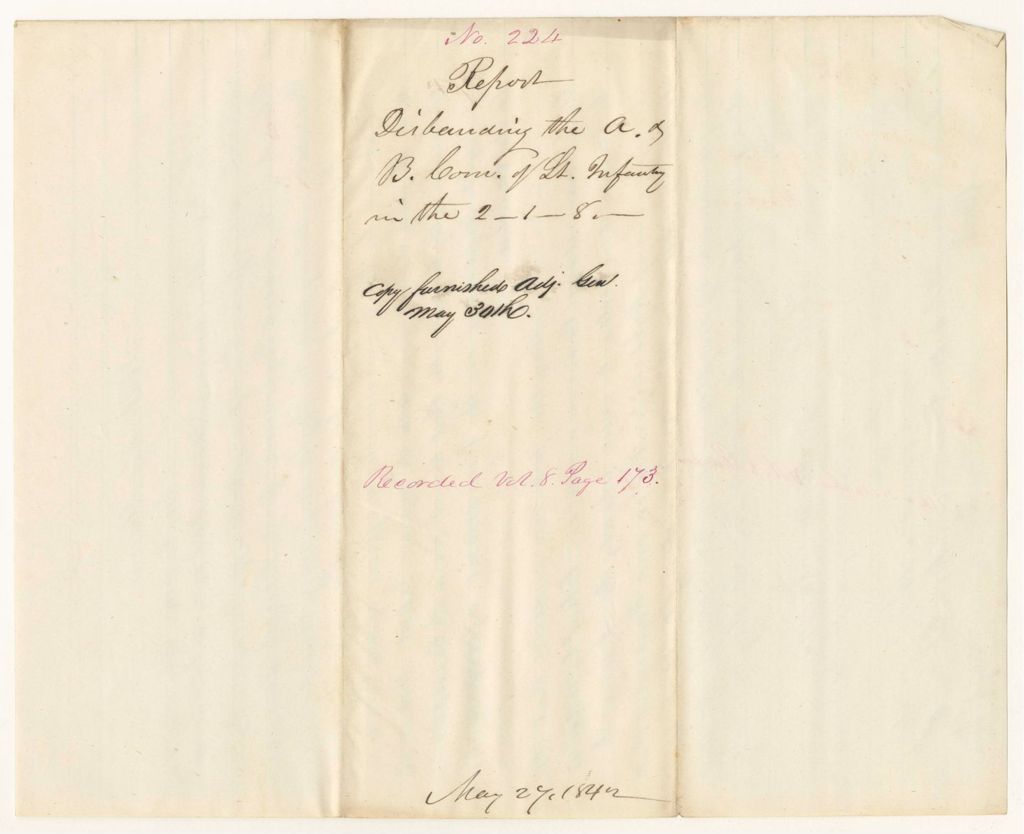 No. 224
Report
Disbanding the A. &
B. Com. of Lt. Infantry
in the 2 - 1 - 8. -
Copy furnished Adj. Gen.
May 30th.
Recorded Vol. 8. Page 173.
May 27, 1842